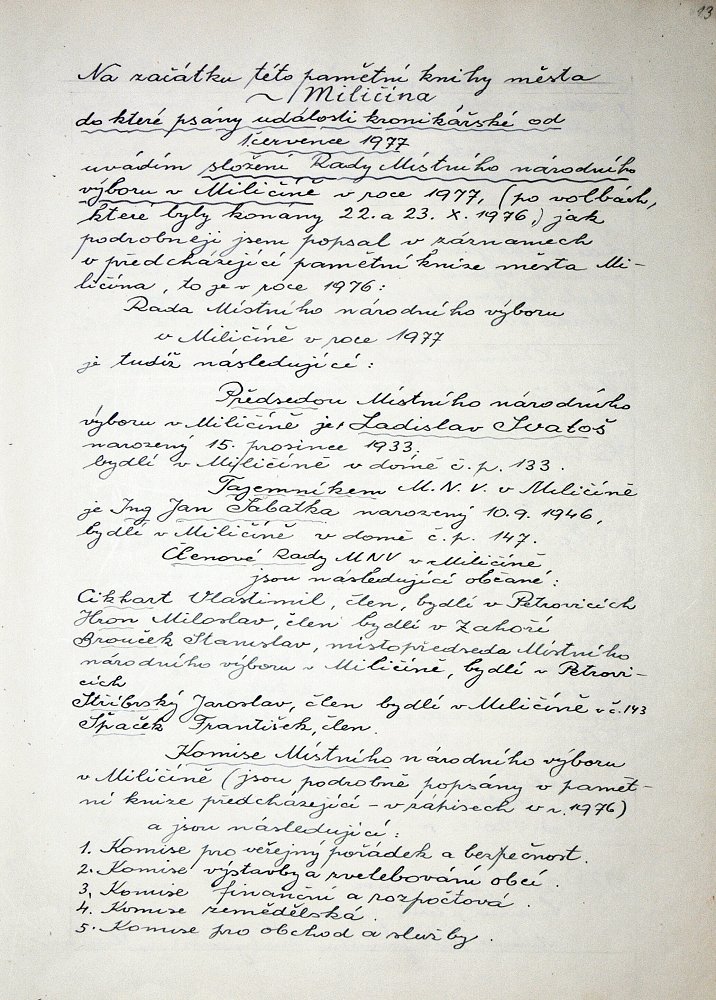 13
Na začátku této pamětní knihy města
~ Miličína
do které psány události kronikářské od
1. července 1977
uvádím složení Rady Místního národního
výboru v Miličíně v roce 1977, (po volbách,
které byly konány 22. a 23. X. 1976,) jak
podrobněji jsem popsal v záznamech
v předcházející pamětní knize města Mi-
ličína, to je v roce 1976:
Rada Místního národního výboru
v Miličíně v roce 1977
je tudíž následující:
Předsedou Místního národního
výboru v Miličíně je, Ladislav Ivatoš
narozený 15. prosince 1933,
bydlí v Miličíně v domě č.p. 133.
Tajemníkem M.N.V. v Miličíně
je Ing Jan Šabatka narozený 10.9. 1946,
bydlí v Miličíně v domě č.p. 147.
Členové Rady MNV v Miličíně
jsou následující občané:
Cikhart Vlastimil, člen, bydlí v Petrovicích
Hron Miloslav, člen bydlí v Zahoří
Brouček Stanislav, místopředseda Místního
národního výboru v Miličíně, bydlí v Petrovi-
cích
Stříbrský Jaroslav, člen bydlí v Miličíně v č. 143
Špaček František, člen.
Komise Místního národního výboru
v Miličíně (jsou podrobně popsány v pamět-
ní knize předcházející - v zápisech v r. 1976)
a jsou následující:
1. Komise pro veřejný pořádek a bezpečnost.
2. Komise výstavby a zvelebování obcí.
3. Komise finanční a rozpočtová.
4. Komise zemědělská.
5. Komise pro obchod a služby.